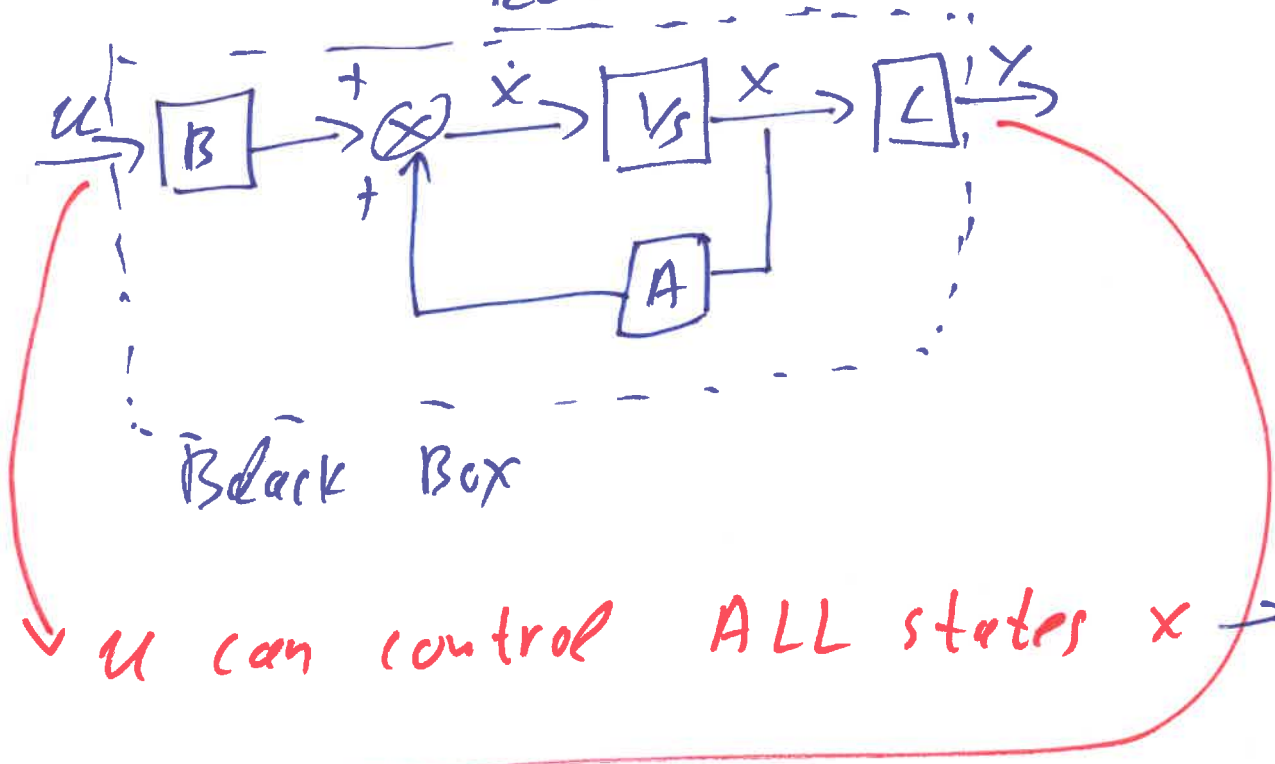 u B + ẋ 1/s x C y
+
A
Black Box
u can control ALL states x →